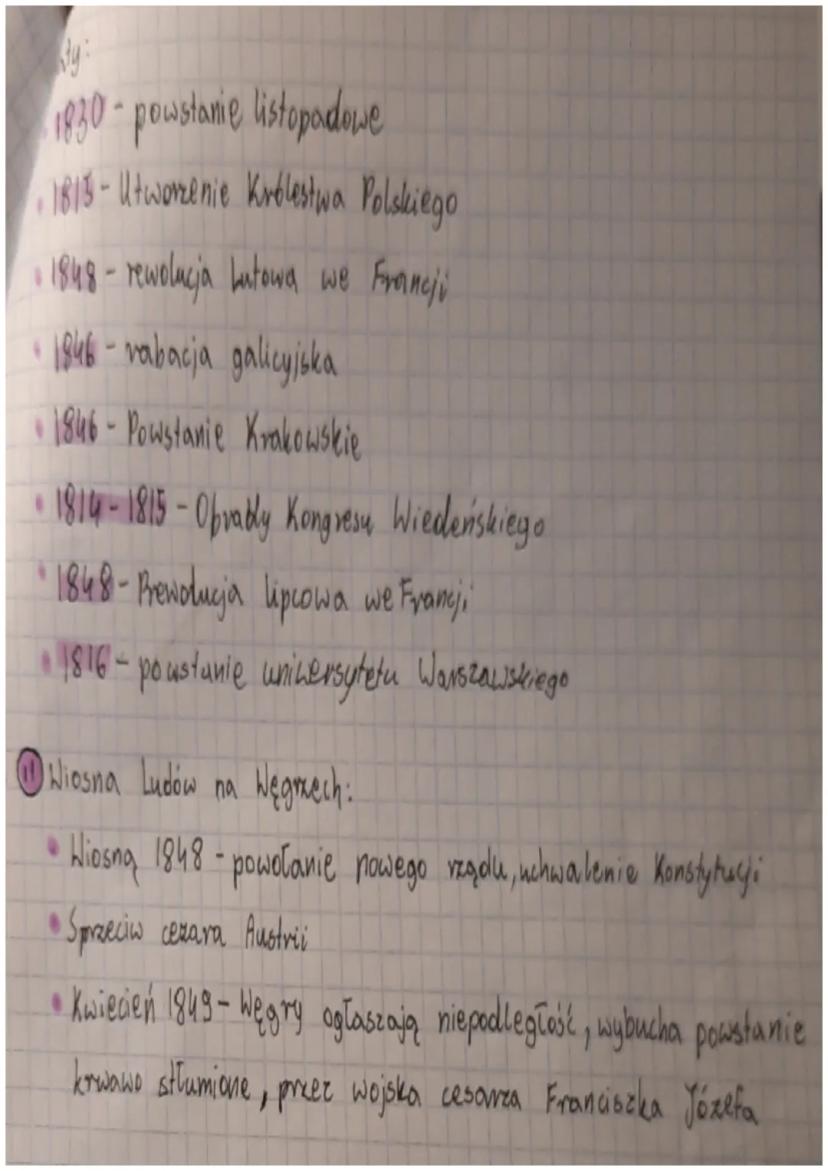 1830 - powstanie listopadowe
• 1815 - Utworzenie Królestwa Polskiego
• 1848 - rewolucja lutowa we Francji
• 1846 - rabacja galicyjska
• 1846 - Powstanie Krakowskie
• 1814-1815 - Obrady Kongresu Wiedeńskiego
• 1848 - Rewolucja lipcowa we Francji
• 1816 - powstanie uniwersytetu Warszawskiego
11 Wiosna Ludów na Węgrzech:
• Wiosną 1848 - powołanie nowego rządu, uchwalenie Konstytucji
• Sprzeciw cezara Austrii
• Kwiecień 1849 - Węgry ogłaszają niepodległość, wybucha powstanie
krwawo stłumione, przez wojska cesarza Franciszka Józefa